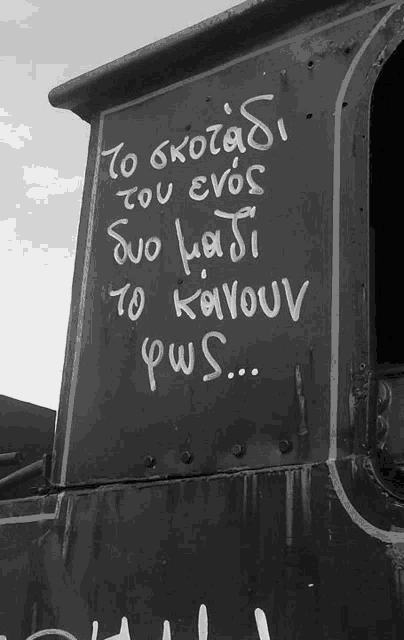 το σκοτάδι
του ενός
δυο μαζί
το κάνουν
φως...